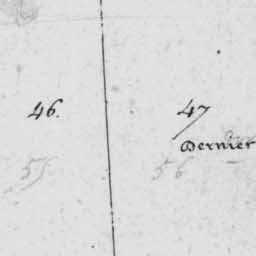 46. 47
Dernier
55 56